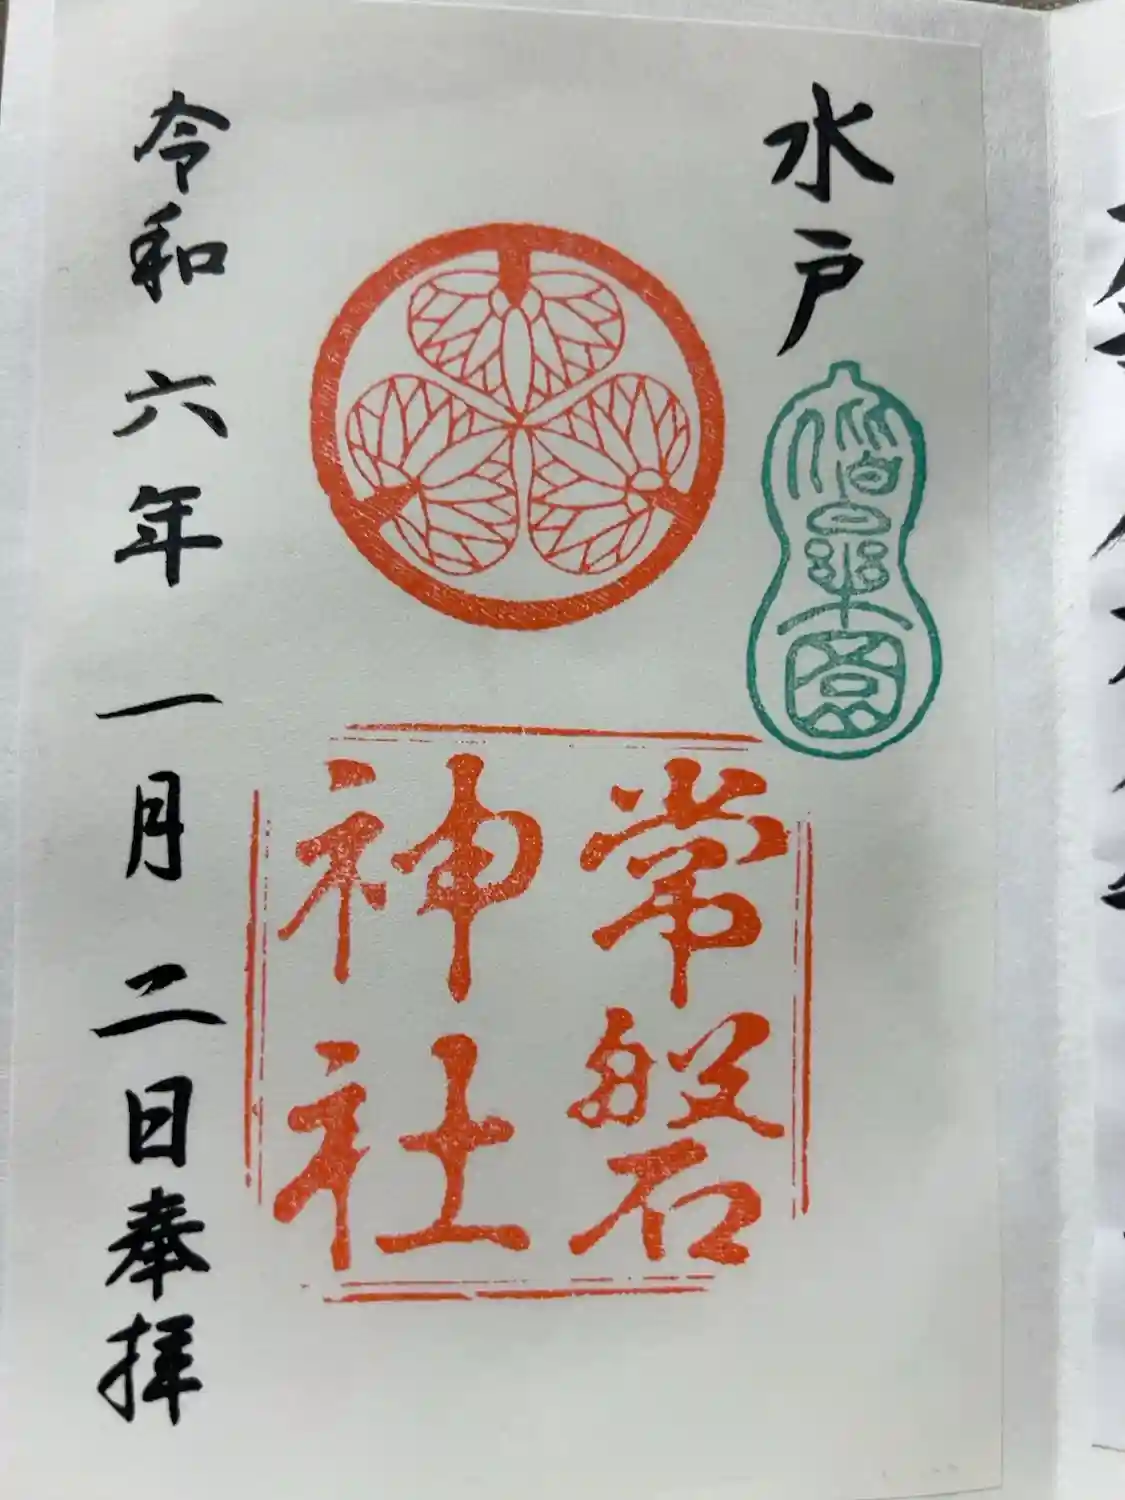 水戸
偕楽園
常磐
神社
令和六年一月二日奉拝